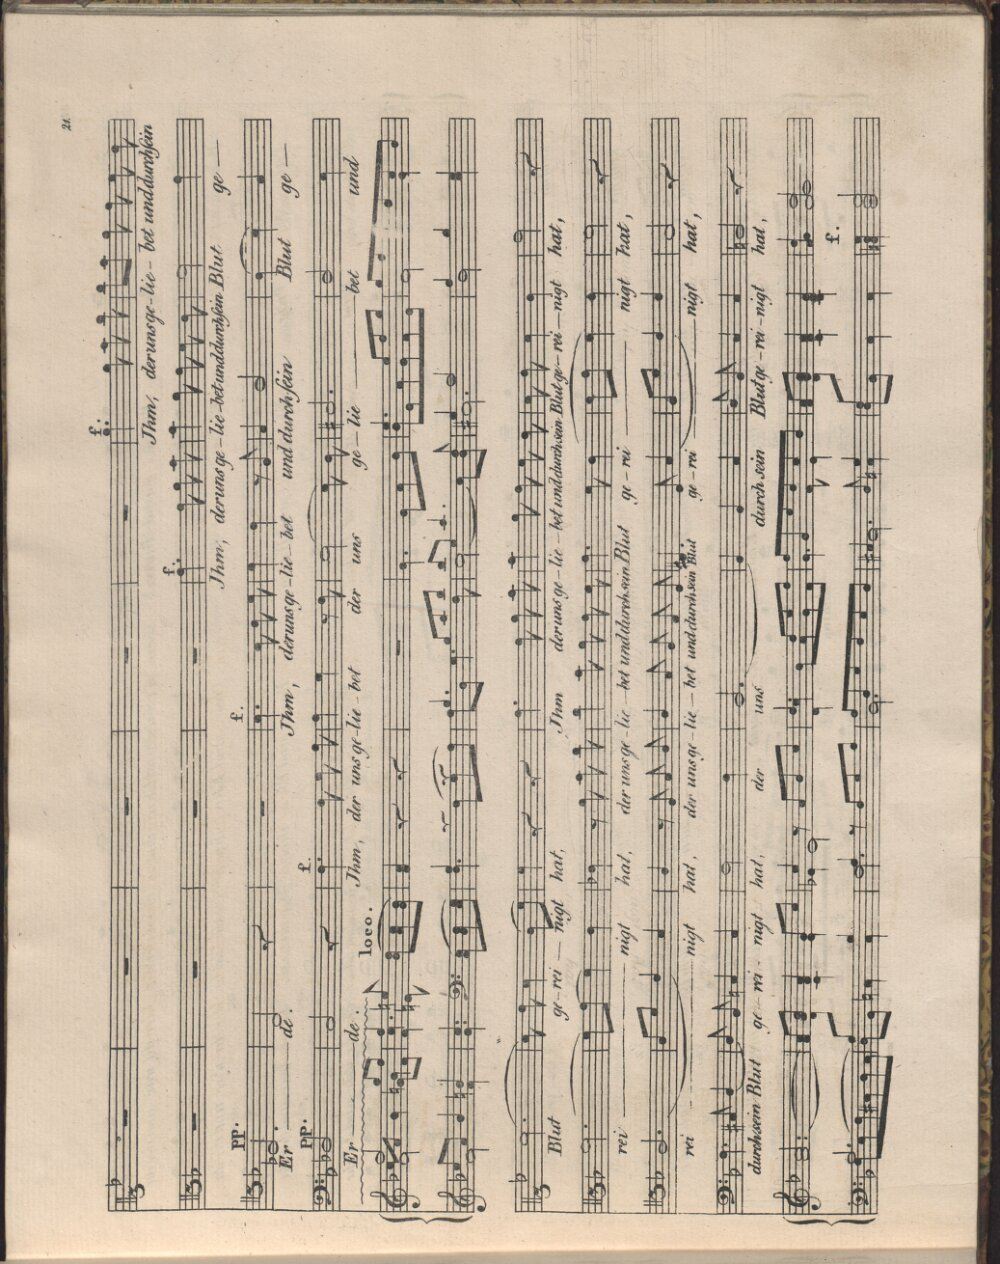 21.
f.
Ihm, der uns ge - lie - bet und durch sein
f.
Ihm, der uns ge - lie - bet und durch sein Blut ge —
PP.
f.
Er — de. Ihm, der uns ge - lie - bet und durch sein Blut ge —
PP.
f.
Er — de. Ihm, der uns ge - lie - bet der uns ge - lie — bet und
loco.
Blut ge - rei — nigt hat, Ihm der uns ge - lie - bet und durch sein Blut ge - rei - nigt hat,
rei — nigt hat, der uns ge - lie - bet und durch sein Blut ge - rei — nigt hat,
rei — nigt hat, der uns ge - lie - bet und durch sein Blut ge - rei — nigt hat,
durch sein Blut ge - rei - nigt hat, der uns durch sein Blut ge - rei - nigt hat,
f.